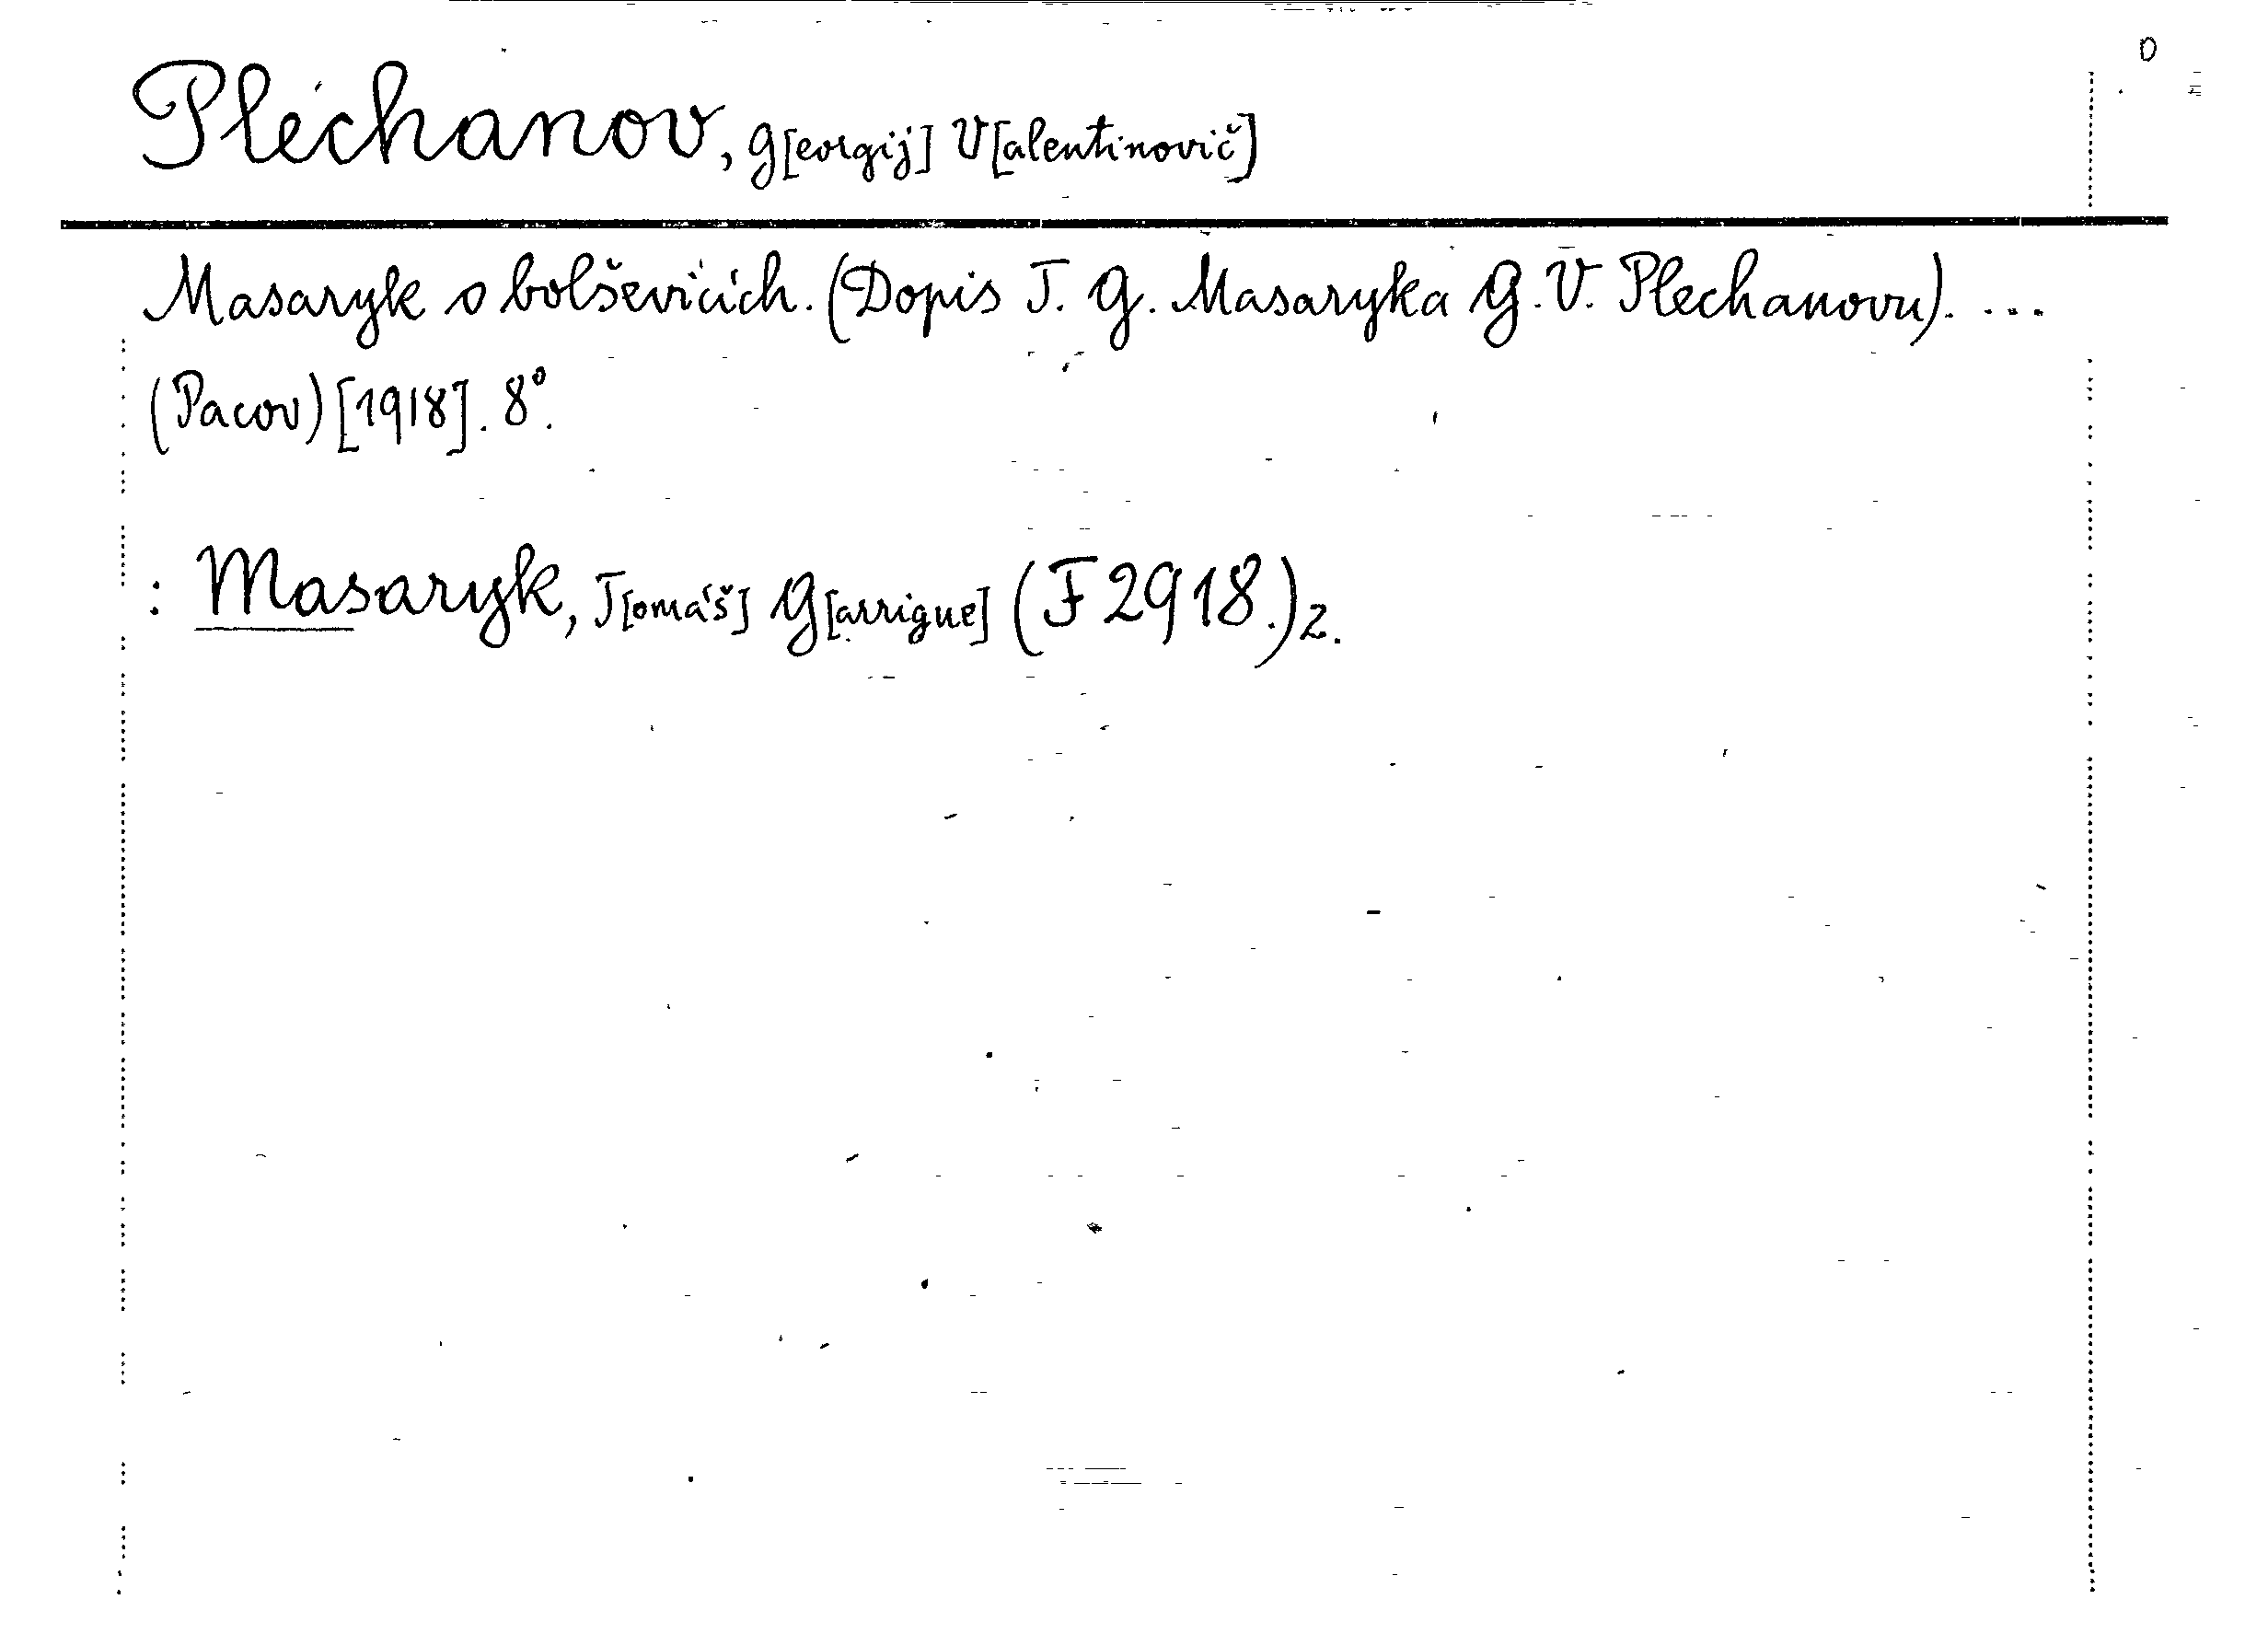 0
Plechanov, G[eorgij] V[alentinovič]
Masaryk o bolševicích. (Dopis T. G. Masaryka G. V. Plechanovu). ...
(Pacov) [1918]. 8°.
: Masaryk, T[omáš] G[arrigue] (F 2918.) 2.